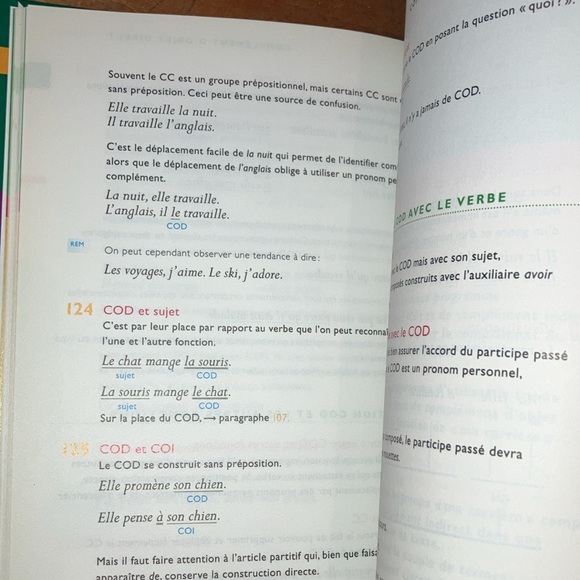 Souvent le CC est un groupe prépositionnel, mais certains CC sont
sans préposition. Ceci peut être une source de confusion.
Elle travaille la nuit.
Il travaille l'anglais.
C'est le déplacement facile de la nuit qui permet de l'identifier com
alors que le déplacement de l'anglais oblige à utiliser un pronom pe
complément.
La nuit, elle travaille.
L'anglais, il le travaille.
COD
REM
On peut cependant observer une tendance à dire :
Les voyages, j'aime. Le ski, j'adore.
124 COD et sujet
C'est par leur place par rapport au verbe que l'on peut reconnaî
l'une et l'autre fonction.
Le chat mange la souris.
sujet COD
La souris mange le chat.
sujet COD
Sur la place du COD, → paragraphe 107.
125 COD et COI
Le COD se construit sans préposition.
Elle promène son chien.
COD
Elle pense à son chien.
COI
Mais il faut faire attention à l'article partitif qui, bien que faisa
apparaître de, conserve la construction directe.
COD en posant la question « quoi ? ».
n'y a jamais de COD.
COD AVEC LE VERBE
le COD mais avec son sujet,
construits avec l'auxiliaire avoir
avec le COD
bien assurer l'accord du participe passé
COD est un pronom personnel,
composé, le participe passé devra